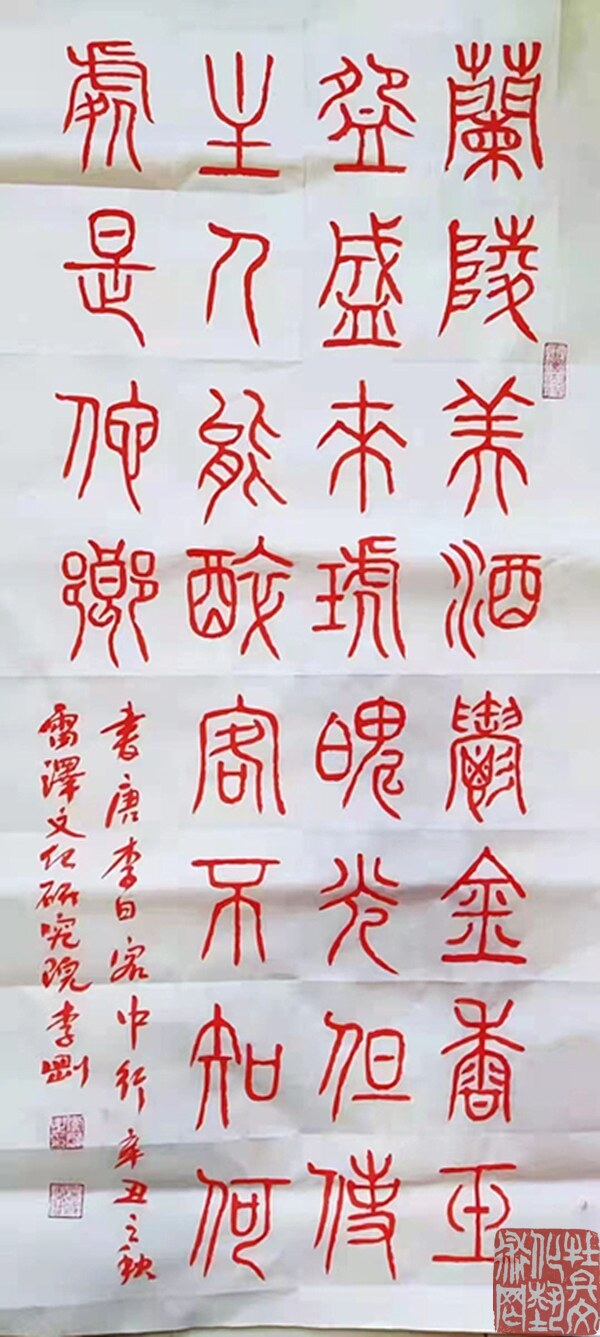 蘭陵美酒鬱金香玉
盌盛來琥魄光但使
主人能醉客不知何
處是他鄉
書唐李白客中行辛丑之秋
雷澤文化研究院李剛
牡丹文化藝術网